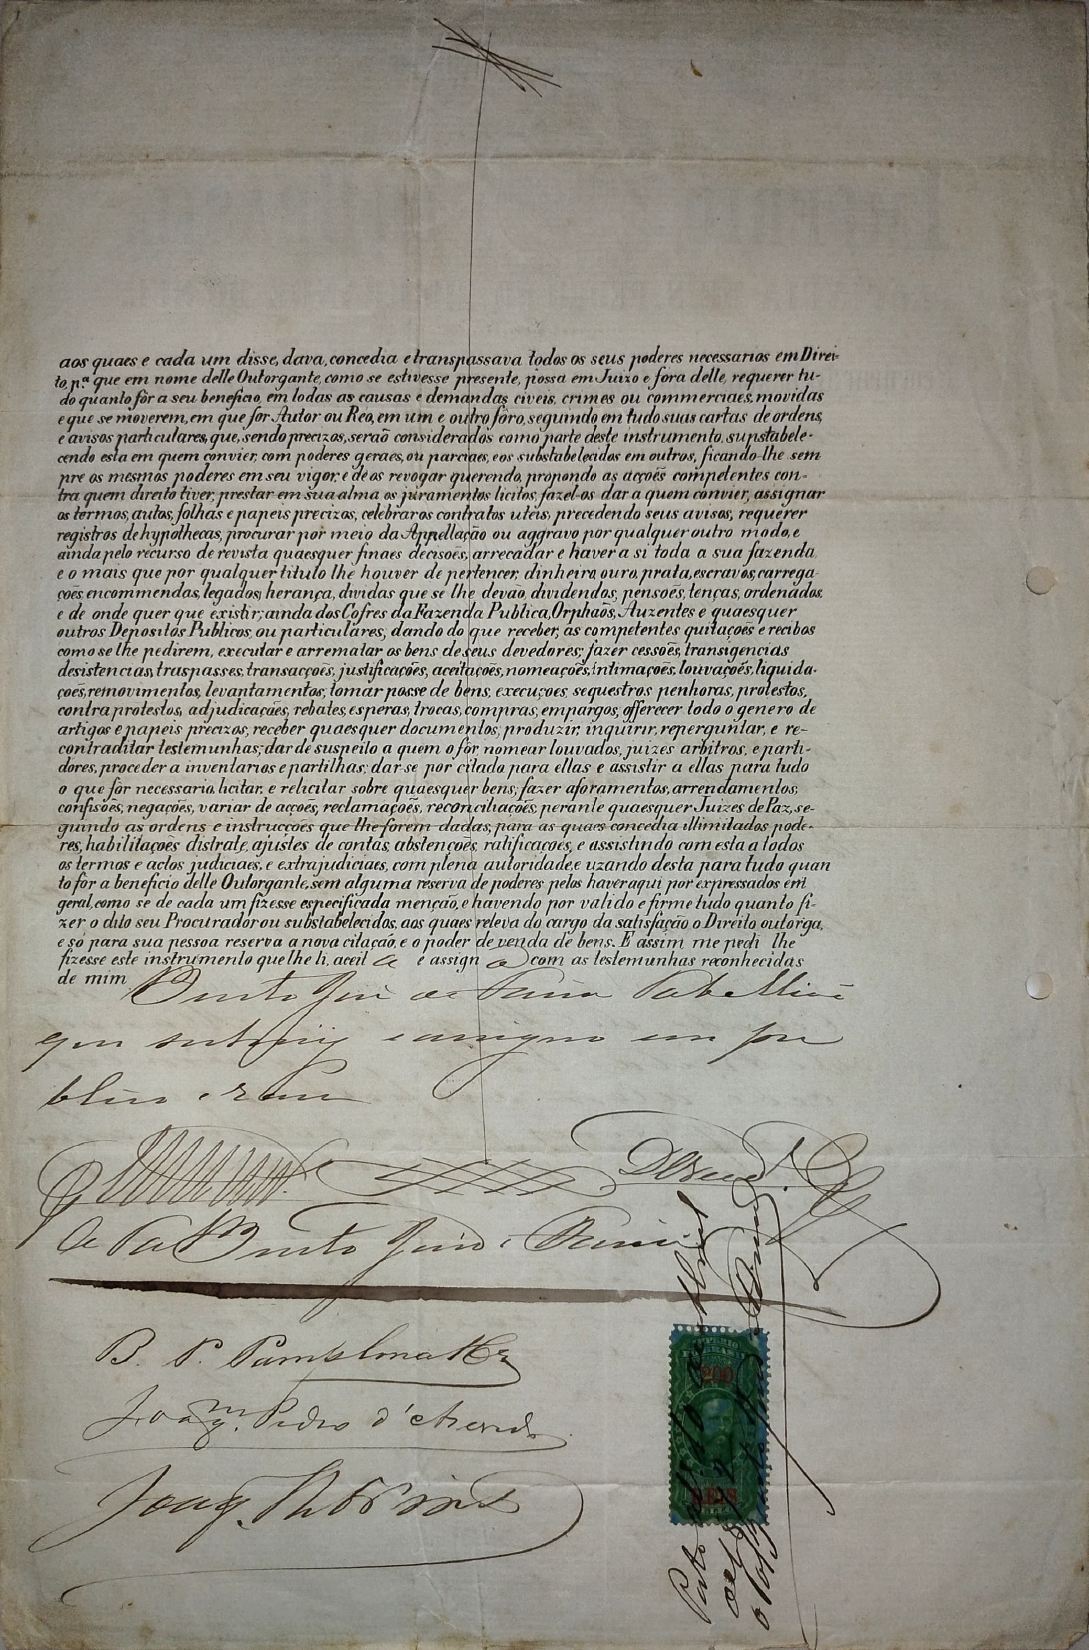 aos quaes e cada um disse, dava, concedia e transpassava todos os seus poderes necessarios em Direi-
to, p.ª que em nome delle Outorgante, como se estivesse presente, possa em Juizo e fora delle, requerer tu-
do quanto fôr a seu beneficio, em todas as causas e demandas civeis, crimes ou commerciaes, movidas
e que se moverem, em que fôr Autor ou Reo, em um e outro fôro, seguindo em tudo suas cartas de ordens,
e avisos particulares, que, sendo precizos, seraõ considerados como parte deste instrumento, supstabele-
cendo esta em quem convier, com poderes geraes, ou parciaes, e os substabelecidos em outros, ficando-lhe sem
pre os mesmos poderes em seu vigor, e de os revogar querendo, propondo as acções competentes con-
tra quem direito tiver, prestar em sua alma os juramentos licitos, fazel-os dar a quem convier, assignar
os termos, autos, folhas e papeis precizos, celebrar os contratos uteis, precedendo seus avisos, requerer
registros de hypothecas, procurar por meio da Appellação ou aggravo por qualquer outro modo, e
ainda pelo recurso de revista quaesquer finaes decisões, arrecadar e haver a si toda a sua fazenda
e o mais que por qualquer titulo lhe houver de pertencer, dinheiro, ouro, prata, escravos, carrega-
ções, encommendas, legados, herança, dividas que se lhe devão, dividendos, pensões, tenças, ordenados,
e de onde quer que existir; ainda dos Cofres da Fazenda Publica, Orphaõs, Auzentes e quaesquer
outros Depositos Publicos, ou particulares, dando do que receber, as competentes quitações e recibos
como se lhe pedirem, executar e arrematar os bens de seus devedores; fazer cessões, transigencias
desistencias, traspasses, transacções, justificações, aceitações, nomeações, intimações, louvações, liquida-
ções, removimentos, levantamentos, tomar posse de bens, execuçoes, sequestros penhoras, protestos,
contra protestos, adjudicações, rebates, esperas, trocas, compras, empargos, offerecer todo o genero de
artigos e papeis precizos, receber quaesquer documentos, produzir, inquirir, reperguntar, e re-
contraditar testemunhas; dar de suspeito a quem o fôr, nomear louvados, juizes arbitros, e parti-
dores, proceder a inventarios e partilhas; dar-se por citado para ellas e assistir a ellas para tudo
o que fôr necessario, licitar, e relicitar sobre quaesquer bens; fazer aforamentos, arrendamentos;
confisões, negações, variar de acções, reclamações, reconciliações; perante quaesquer Juizes de Paz, se-
guindo as ordens e instrucções que lhe forem dadas, para as quaes concedia illimitados pode-
res, habilitações distrate, ajustes de contas, abstenções, ratificações, e assistindo com esta a todos
os termos e actos judiciaes, e extrajudiciaes, com plena autoridade, e uzando desta para tudo quan
to fôr a beneficio delle Outorgante, sem alguma reserva de poderes pelos haver aqui por expressados em
geral, como se de cada um fizesse especificada menção, e havendo por valido e firme tudo quanto fi-
zer, o dito seu Procurador ou substabelecidos, aos quaes releva do cargo da satisfação o Direito outorga,
e só para sua pessoa reserva a nova citação, e o poder de venda de bens. E assim me pedi lhe
fizesse este instrumento que lhe li, aceit a e assign a com as testemunhas reconhecidas
de mim Bento José de Faria Tabelliaõ
que subscrevy e assigno em pu
blico e raso
B. P. Pamplona
Joaq.m Pedro d'Azevedo
Joaq.
IMPERIO
DO BRASIL
200
REIS